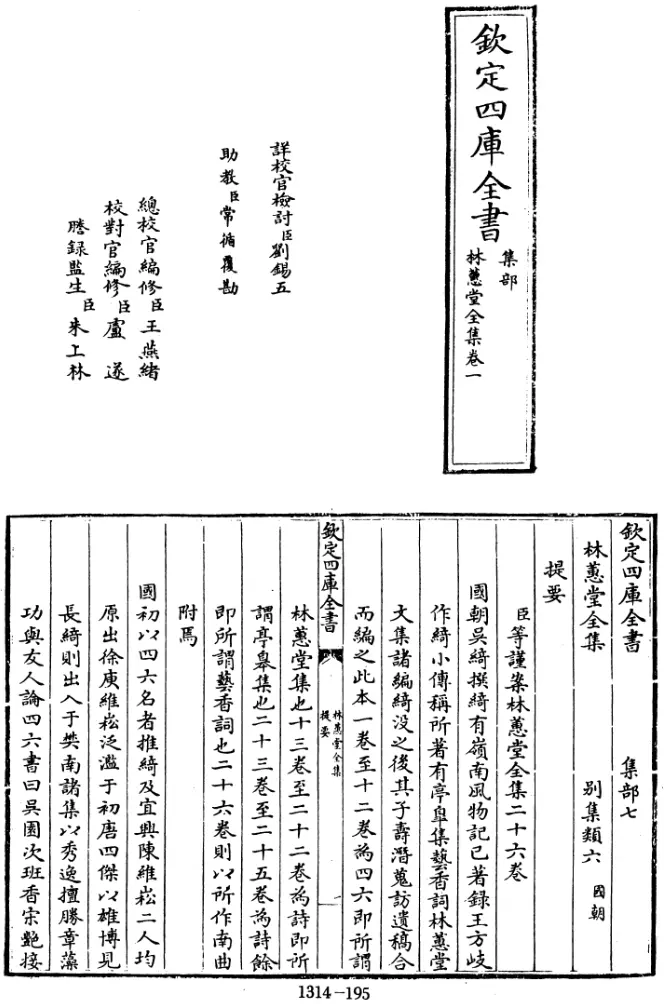 欽定四庫全書
集部
林蕙堂全集卷一
詳校官檢討臣劉錫五
助教臣常循覆勘
總校官編修臣王燕緒
校對官編修臣盧遂
謄錄監生臣朱上林
欽定四庫全書 集部七
林蕙堂全集 別集類六 國朝
提要
臣等謹案林蕙堂全集二十六卷
國朝吳綺撰綺有嶺南風物記已著錄王方岐
作綺小傳稱所著有亭臯集藝香詞林蕙堂
文集諸編綺没之後其子壽潛蒐訪遺稿合
而編之此本一卷至十二卷為四六即所謂
欽定四庫全書
林蕙堂全集
提要
一
林蕙堂集也十三卷至二十二卷為詩即所
謂亭臯集也二十三卷至二十五卷為詩餘
即所謂藝香詞也二十六卷則以所作南曲
附焉
國初以四六名者推綺及宜興陳維崧二人均
原出徐庾維崧泛濫于初唐四傑以雄博見
長綺則出入于樊南諸集以秀逸擅勝章藻
功與友人論四六書曰吳園次班香宋艶接
1314-195